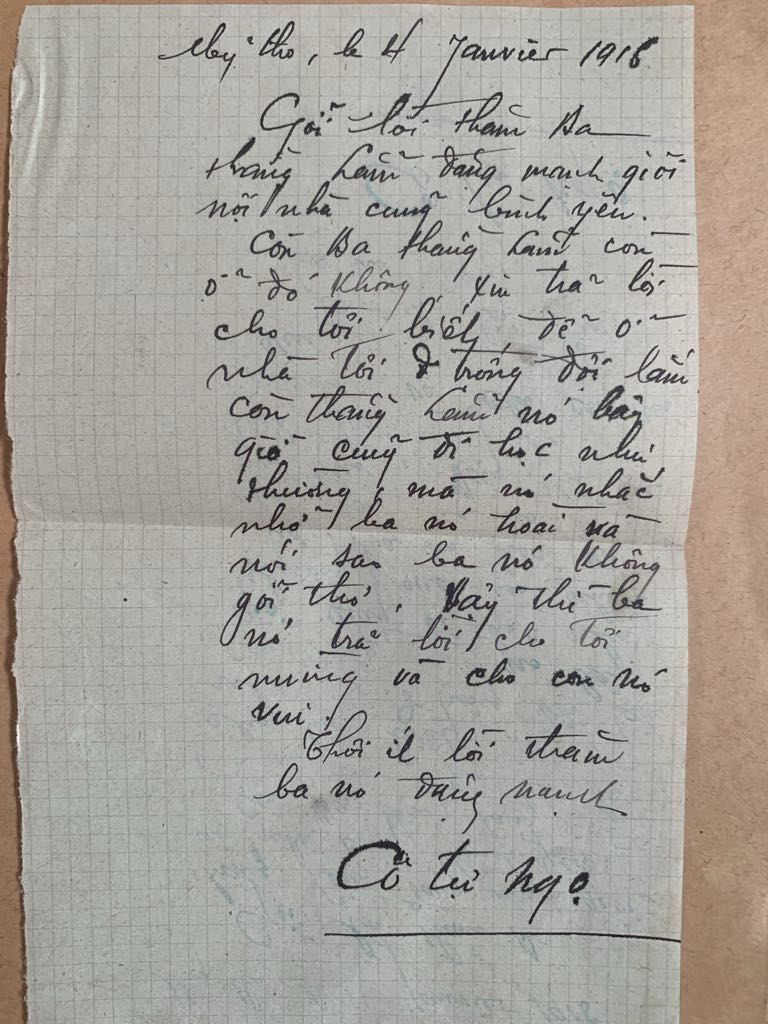 Mỹ tho, le 4 Janvier 1916
Gởi lời thăm Ba
thằng Lắm đặng mạnh giỏi
nội nhà cũng bình yên.
Còn Ba thằng Lắm còn
ở đó không, xin trả lời
cho tôi biết, để ở
nhà tôi trông đợi lắm
còn thằng Lắm nó bây
giờ cũng đi học như
thường, mà nó nhắc
nhở ba nó hoài và
nói sao ba nó không
gởi thơ, Vậy thì ba
nó trả lời cho tôi
mừng và cho con nó
vui.
Thôi ít lời thăm
ba nó đặng mạnh
Cô tư Ngọ